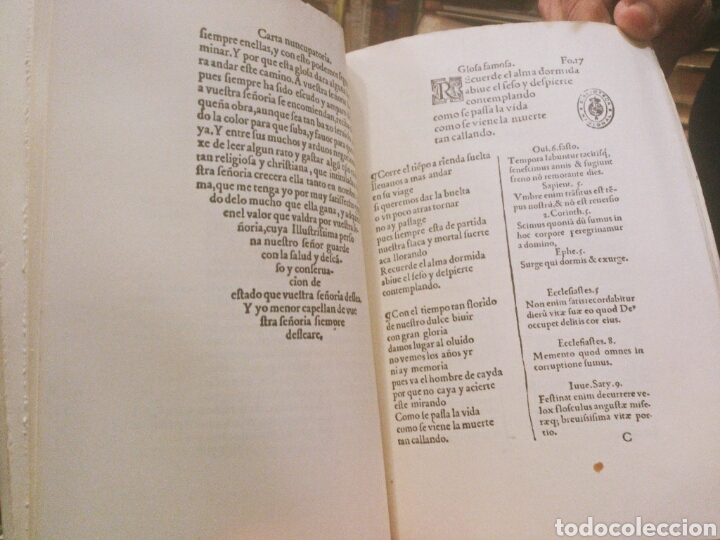 Carta nuncupatoria.
siempre enellas, y con esto podemos
minar. Y por que esta glosa dara algun
a andar este camino. A vuestra señor
pues siempre ha sido escudo y ampar
a vuestra señoria se encomiendan, reci
queña obra, aunque sea tan baxo
do la color para que suba, y fauor para
ya. Y entre sus muchos y arduos negocio
xe de leer algun rato y gastar algũ
tan religiosa y christiana, que intitulan
stra señoria crecera ella tanto en nombre
ma, que me tenga yo por muy satisfecho
dolo mucho que ella gana, y a
enel valor que valdra por vuestra se
ñoria, cuya Illustrissima perso
na nuestro señor guarde
con la salud y descã
so y conserua
cion de
estado que vuestra señoria dessea.
Y yo menor capellan de vue
stra señoria siempre
desseare,
Glosa famosa. Fo. 17
REcuerde el alma dormida
abiue el seso y despierte
contemplando
como se passa la vida
como se viene la muerte
tan callando.
¶Corre el tiẽpo a rienda suelta
lleuanos a mas andar
en su viage
si queremos dar la buelta
o vn poco atras tornar
no ay passage
pues siempre esta de partida
nuestra flaca y mortal fuerte
aca llorando
Recuerde el alma dormida
abiue el seso y despierte
contemplando.
¶Con el tiempo tan florido
de nuestro dulce biuir
con gran gloria
damos lugar al oluido
no vemos los años yr
ni ay memoria
pues va el hombre de cayda
por que no caya y acierte
este mirando
Como se passa la vida
como se viene la muerte
tan callando.
Oui. 6. fasto.
Tempora labuntur tacitisq́,
senescimus annis & fugiunt
freno nõ remorante dies.
Sapien. 5.
Vmbre enim trãsitus est tẽ-
pus nostrũ, & nõ est reuersio
2. Corinth. 5.
Scimus quoniã dũ sumus in
hoc corpore peregrinamur
a domino,
Ephe. 5.
Surge qui dormis & exurge.
Ecclesiastes. 5
Non enim satis recordabitur
dierũ vitæ suæ eo quod De-
occupet delitis cor eius.
Ecclesiastes. 8.
Memento quod omnes in
corruptione sumus.
Iuue. Saty. 9.
Festinat enim decurrere ve-
lox flosculus angustæ mise-
ræq́; breuissima vitæ por-
tio.
C
todocoleccion